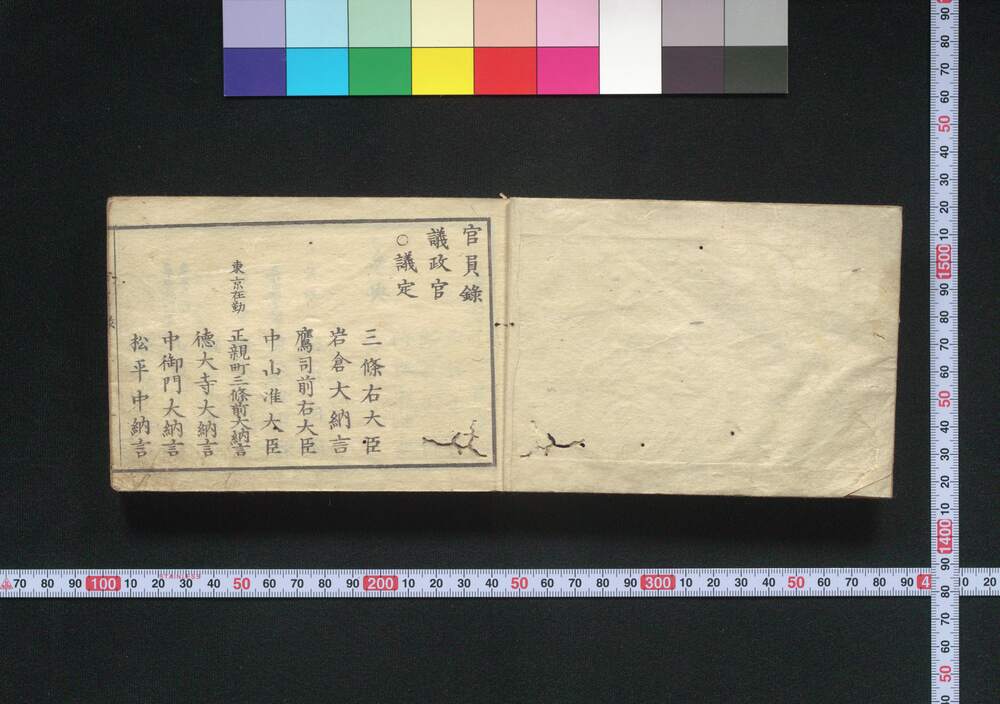 官員錄
議政官
○議定
三條右大臣
岩倉大納言
鷹司前右大臣
中山准大臣
東京在勤 正親町三條前大納言
徳大寺大納言
中御門大納言
松平中納言
70 80 90 100 10 20 30 40 50 60 70 80 90 200 10 20 30 40 50 60 70 80 90 300 10 20 30 40 50 60 70 80 90 4 20
STAINLESS
90 80 70 60 50 40 30 20 10 1500 90 80 70 60 50 40 30 20 10 1400 90 80 70 60 50